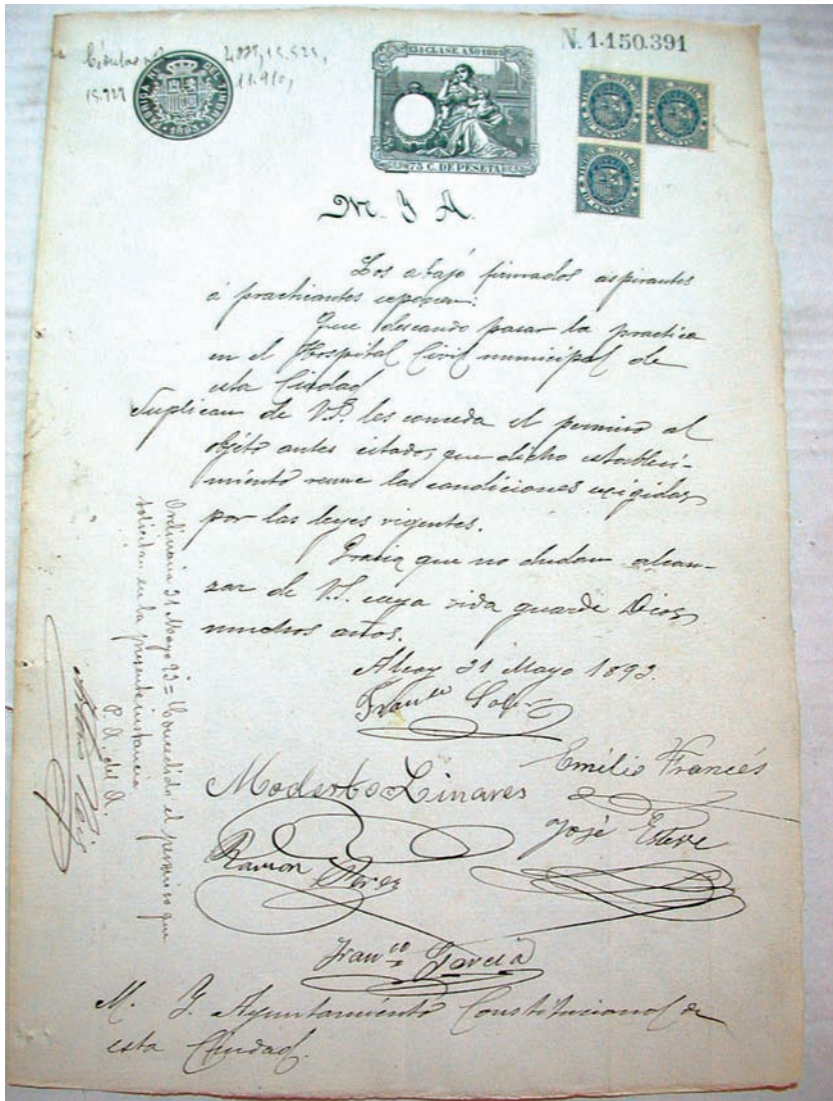 Cédulas
15.929
4.889, 15.525,
11.910,
FABRICA NAL DEL TIMBRE
1893
13ª CLASE. AÑO 1893
75 C. DE PESETA
N. 1.150.391
M. Y A.
Los abajo firmados aspirantes
á practicantes exponen:
Que deseando pasar la practica
en el Hospital Civil municipal de
esta Ciudad
Suplican de V.S. les conceda el permiso al
objeto antes citado, que dicho estableci-
miento reune las condiciones exigidas
por las leyes vigentes.
Gracia que no dudan alcan-
zar de V.S. cuya vida guarde Dios
muchos años.
Alcoy 31 Mayo 1893.
Franco
Emilio Francés
Modesto Linares
José Esteve
Ramon
Franco Garcia
M. Y. Ayuntamiento Constitucional de
esta Ciudad.
Ordinaria 31 Mayo 93 = Concedido el permiso que
solicitan en la presente instancia
P. A. del A.